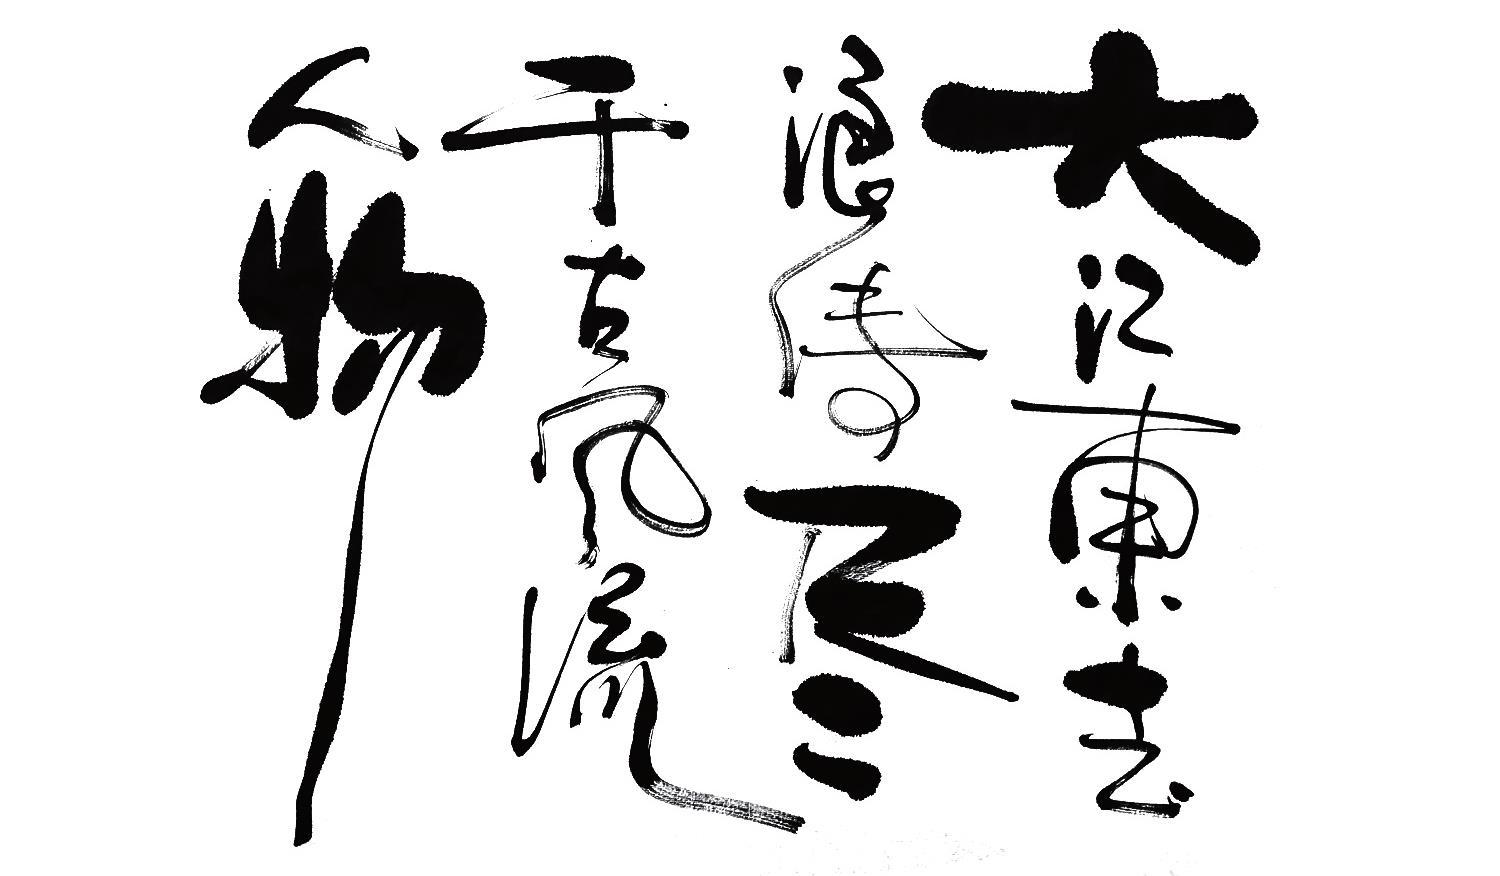 大江東去
浪淘尽
千古風流
人物